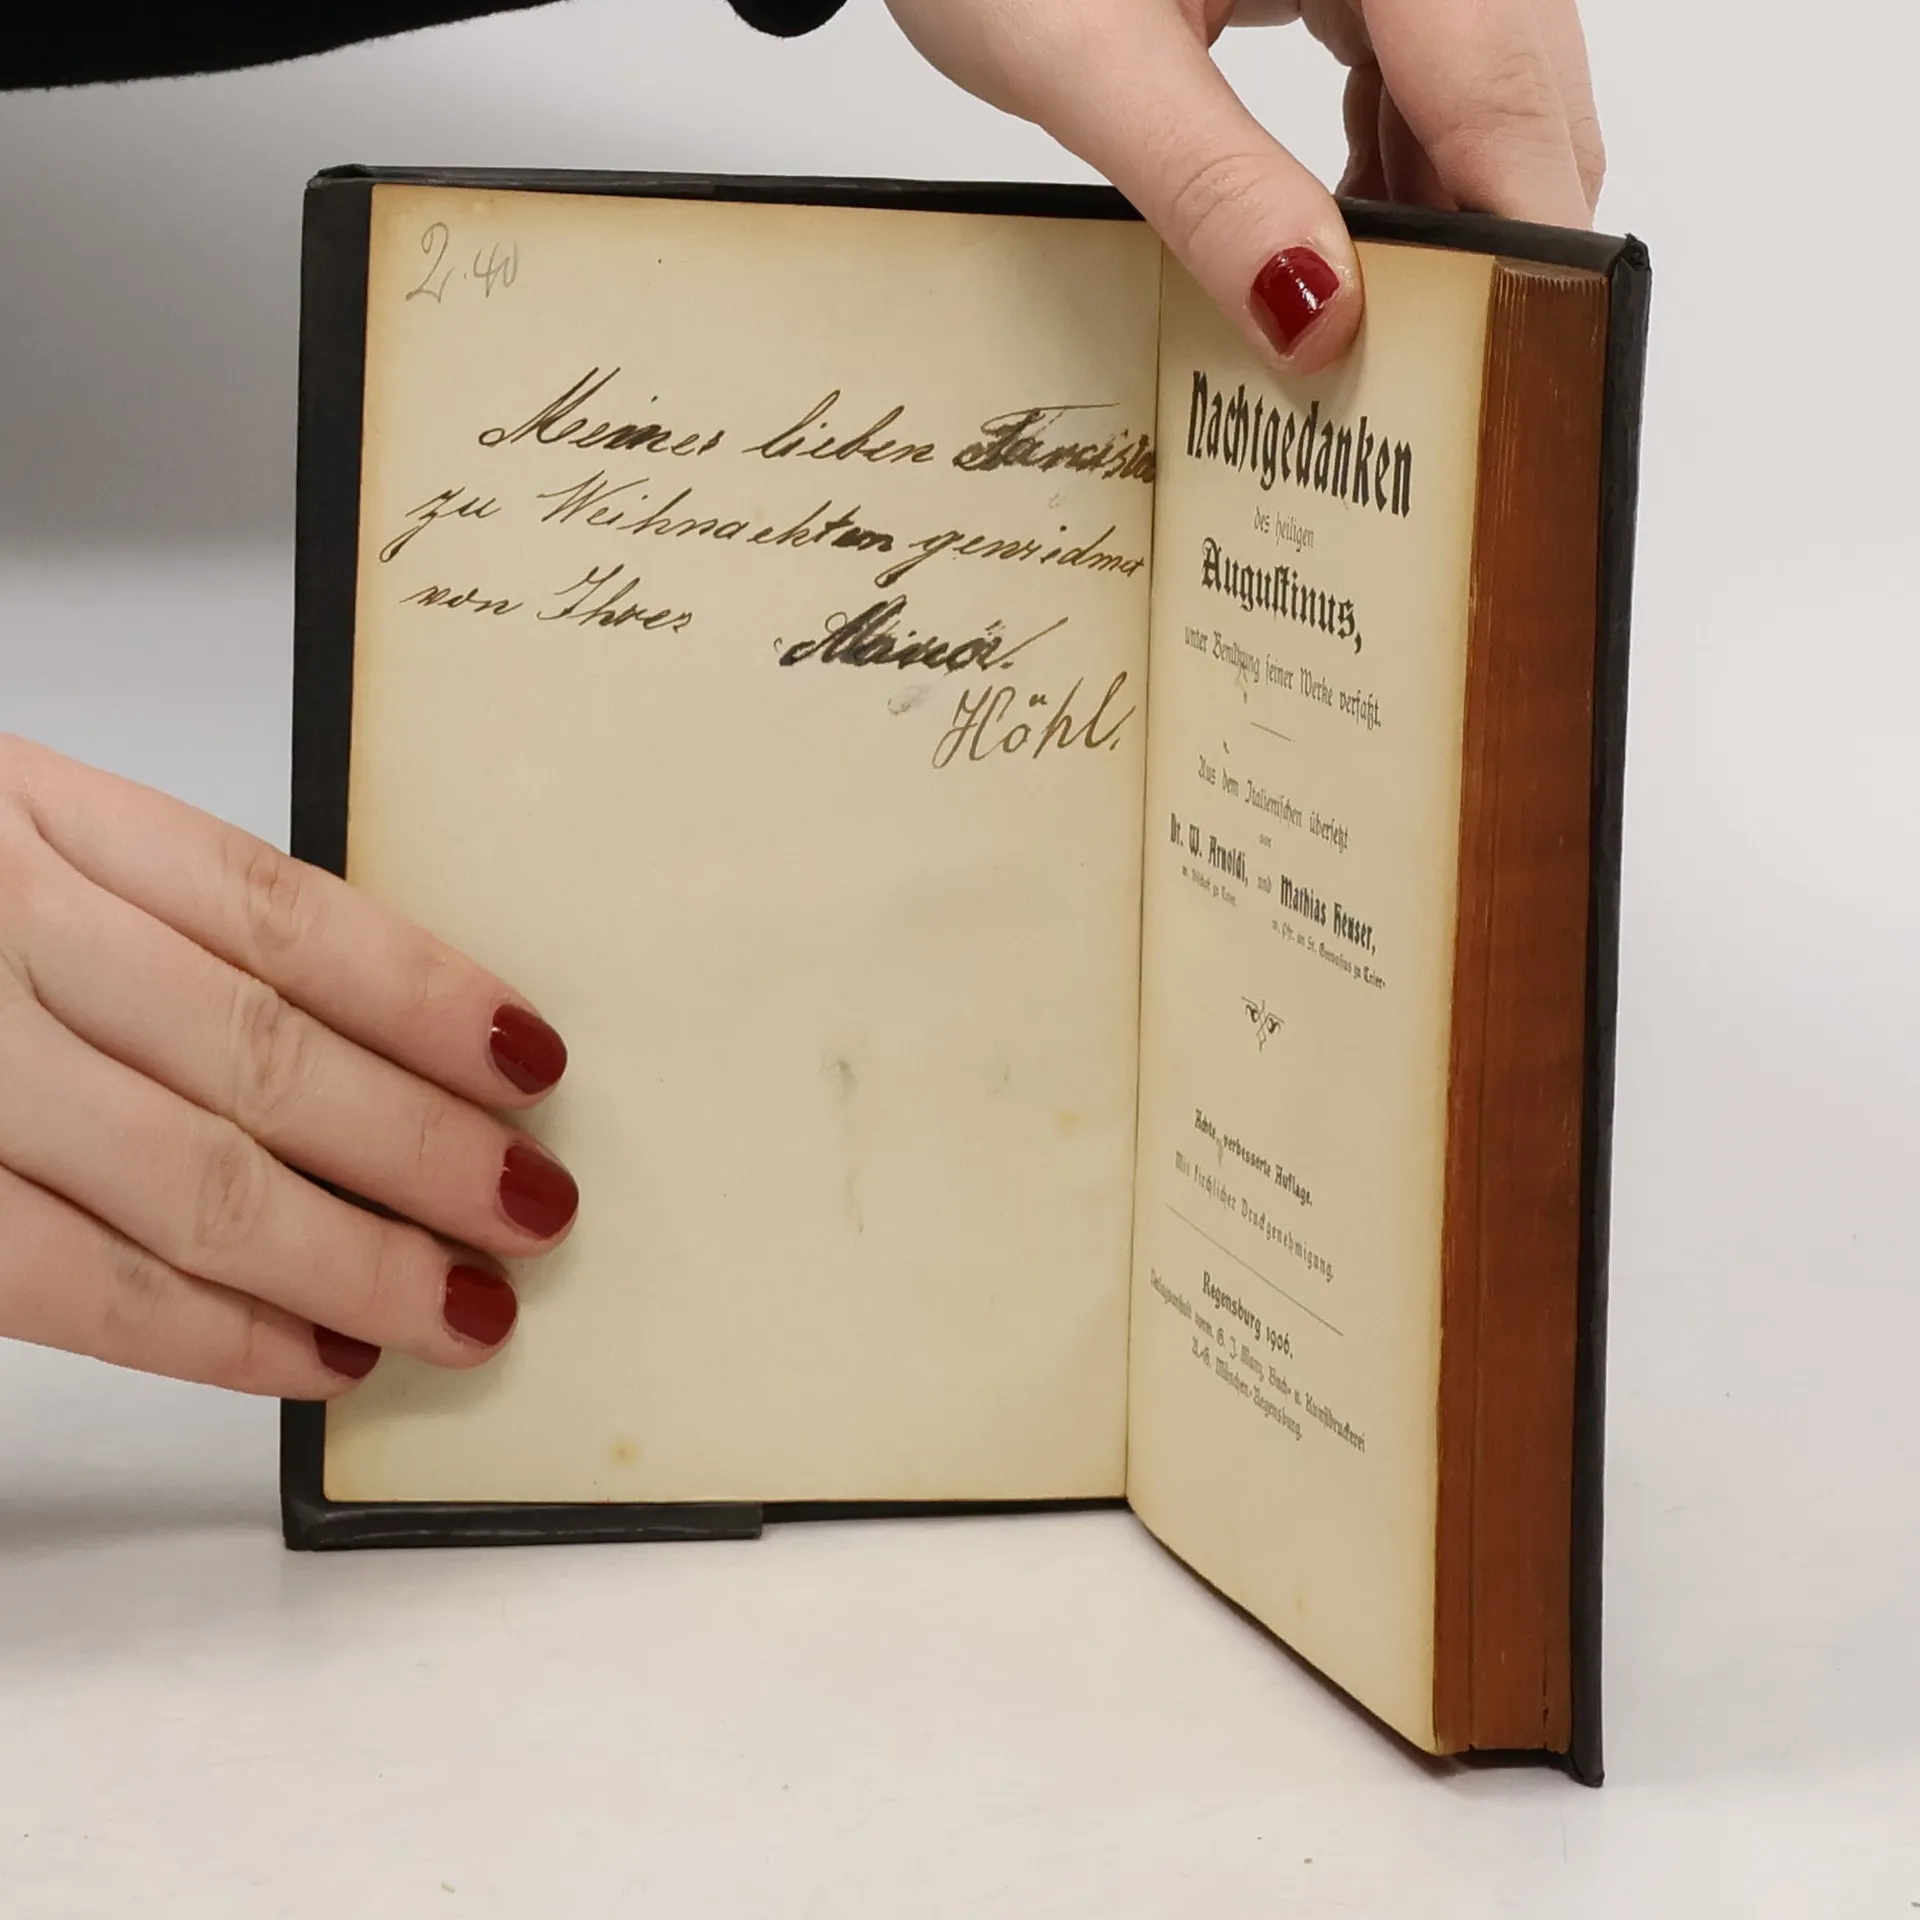 2.40
Meiner lieben
zu Weihnachten gewidmet
von Ihrer
Höhl.
Nachtgedanken
des heiligen
Augustinus,
unter Benützung seiner Werke verfaßt.
Aus dem Italienischen übersetzt
von
Dr. W. Arnoldi, und Mathias Heuser,
w. Bischof zu Trier,
w. Pfr. an St. Gervasius zu Trier.
Achte, verbesserte Auflage.
Mit kirchlicher Druckgenehmigung.
Regensburg 1906.
Verlagsanstalt vorm. G. J. Manz, Buch- u. Kunstdruckerei
A.-G. München-Regensburg.